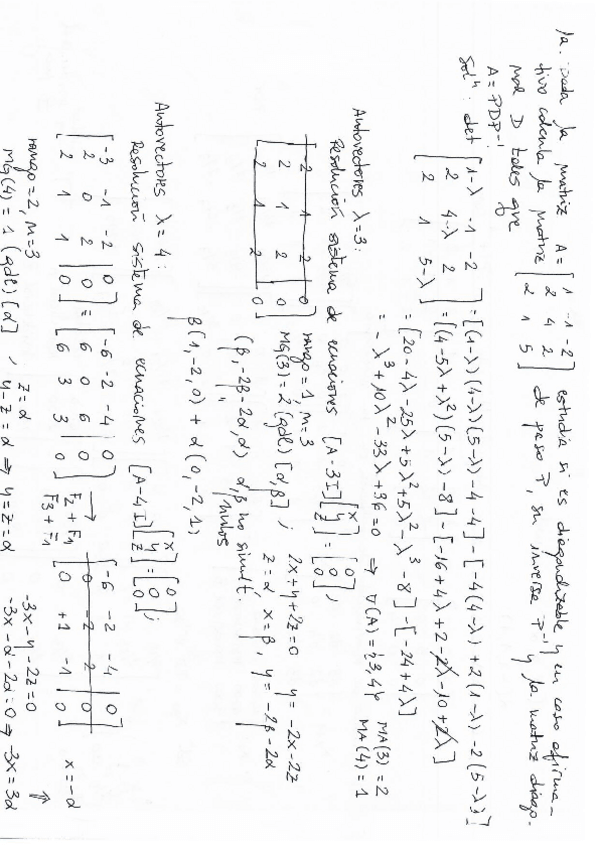 1a. Dada la matriz A = [1 -1 -2; 2 4 2; 2 1 5] estudia si es diagonalizable y en caso afirma-
tivo calcula la matriz de paso P, su inversa P⁻¹ y la matriz diago-
nal D tales que
A = PDP⁻¹
Solⁿ: det [1-λ -1 -2; 2 4-λ 2; 2 1 5-λ] = [(1-λ)(4-λ)(5-λ)-4-4] - [-4(4-λ)+2(1-λ)-2(5-λ)]
= [(4-5λ+λ²)(5-λ)-8] - [-16+4λ+2-2λ-10+2λ]
= [20-4λ-25λ+5λ²+5λ²-λ³-8] - [-24+4λ]
= -λ³+10λ²-33λ+36=0 ⇒ σ(A)={3,4} MA(3)=2
MA(4)=1
Autovectores λ=3:
Resolución sistema de ecuaciones [A-3I][x y z] = [0 0 0];
[-2 -1 -2 | 0; 2 1 2 | 0; 2 1 2 | 0] rango=1, n=3
MG(3)=2 (gdl) [α,β]; 2x+y+2z=0 y=-2x-2z
z=α x=β, y=-2β-2α
(β, -2β-2α, α) α,β no simult. nulos
β(1,-2,0)+α(0,-2,1)
Autovectores λ=4:
Resolución sistema de ecuaciones [A-4I][x y z]=[0 0 0];
[-3 -1 -2 | 0; 2 0 2 | 0; 2 1 1 | 0] = [-6 -2 -4 | 0; 6 0 6 | 0; 6 3 3 | 0] → F2+F1 F3+F1 [-6 -2 -4 | 0; 0 -2 2 | 0; 0 +1 -1 | 0]
x=-α
rango=2, n=3
-3x-y-2z=0
MG(4)=1 (gdl) [α], z=α y-z=α ⇒ y=z=α -3x-α-2α=0 ⇒ -3x=3α